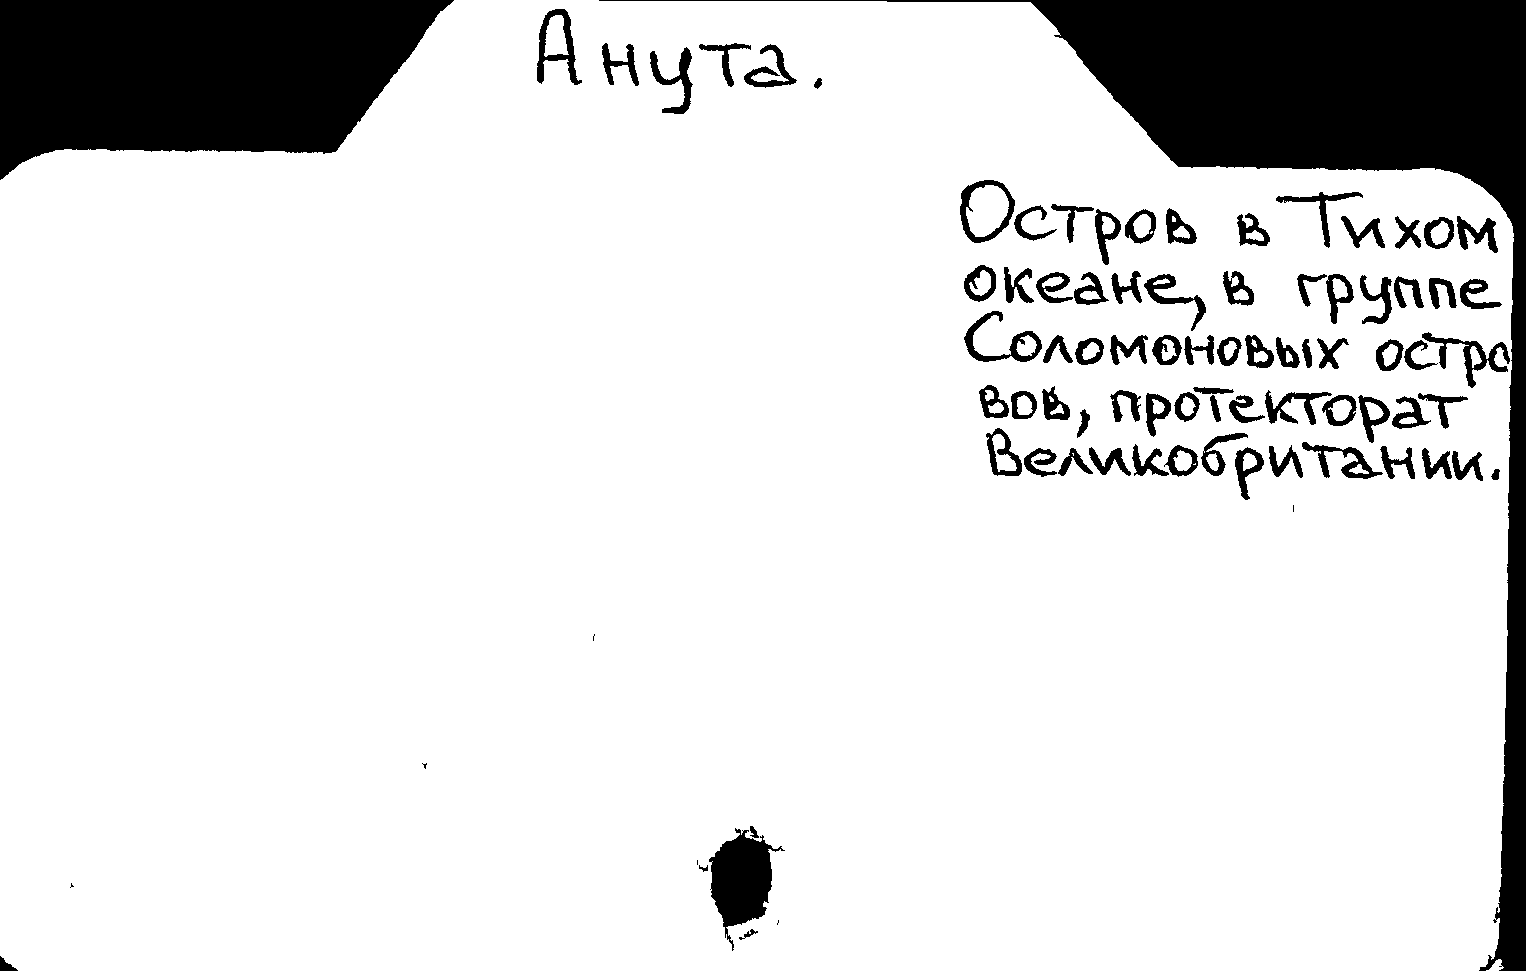 Анута.
Остров в Тихом
океане, в группе
Соломоновых остро
вов, протекторат
Великобритании.